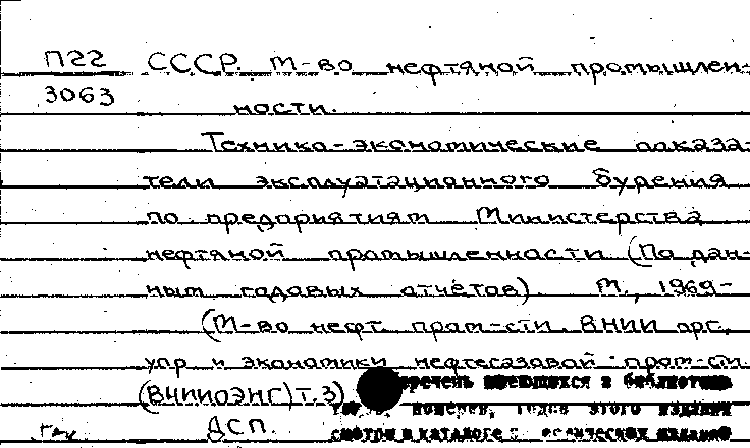 П22 СССР. М-во нефтяной промышлен-
3063 ности.
Технико-экономические показа-
тели эксплуатационного бурения
по предприятиям Министерства
нефтяной промышленности (По дан-
ным годовых отчётов). М., 1969-
(М-во нефт. пром-сти. ВНИИ орг.,
упр. и экономики нефтегазовой пром-сти
(ВНИИОЭНГ) т. 3)
Перечень имеющихся в библиотеке
томов, номеров, годов этого издания
ДСП.
смотри в каталоге изданий